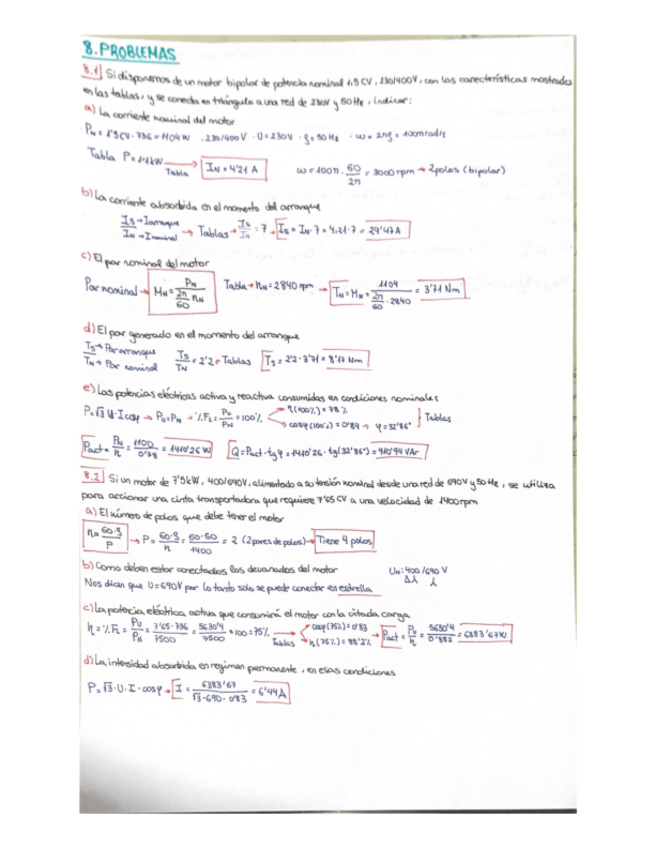 8. PROBLEMAS
8.1 Si disponemos de un motor bipolar de potencia nominal 1,5 CV, 230/400V, con las características mostradas
en las tablas, y se conecta en triángulo a una red de 230V y 50 Hz, indicar:
a) La corriente nominal del motor
PN = 1'5 CV · 736 = 1104 W · 230/400 V · U = 230V · f = 50 Hz · ω = 2πf = 100π rad/s
Tabla P = 1'1 kW → Tabla IN = 4'21 A ω = 100π · 60/2π = 3000 rpm → 2 polos (bipolar)
b) La corriente absorbida en el momento del arranque
IS → I arranque / IN → I nominal → Tablas → IS/IN = 7 → IS = IN · 7 = 4,21 · 7 = 29'47 A
c) El par nominal del motor
Par nominal → MN = PN / (2π/60 · nN) Tabla → nN = 2840 rpm → TN = MN = 1104 / (2π/60 · 2840) = 3'71 Nm
d) El par generado en el momento del arranque
TS → Par arranque / TN → Par nominal TS/TN = 2'2 ← Tablas TS = 2'2 · 3'71 = 8'17 Nm
e) Las potencias eléctricas activa y reactiva consumidas en condiciones nominales
P = √3 U · I cos φ → PU = PN → % FL = PU/PN = 100% → η (100%) = 78 %
→ cos φ (100%) = 0'84 → φ = 32'86° } Tablas
Pact = PN/η = 1100/0'78 = 1410'26 W Q = Pact · tg φ = 1410'26 · tg (32'86°) = 910'94 VAr
8.2 Si un motor de 7'5 kW, 400/690V, alimentado a su tensión nominal desde una red de 690V y 50 Hz, se utiliza
para accionar una cinta transportadora que requiere 7'65 CV a una velocidad de 1400 rpm
a) El número de polos que debe tener el motor
n = 60·f / P → P = 60·f / n = 60·50 / 1400 = 2 (2 pares de polos) → Tiene 4 polos
b) Como deben estar conectados los devanados del motor UN: 400/690 V
Nos dicen que U = 690V por lo tanto solo se puede conectar en estrella
c) La potencia eléctrica activa que consumirá el motor con la citada carga
η = % FL = PU/PN = 7'65 · 736 / 7500 = 5630'4 / 7500 · 100 = 75% → Tablas cos φ (75%) = 0'83
η (75%) = 88'2% → Pact = PU/η = 5630'4 / 0'882 = 6383'67 W
d) La intensidad absorbida en regimen permanente, en esas condiciones
P = √3 · U · I · cos φ → I = 6383'67 / √3 · 690 · 0'83 = 6'44 A